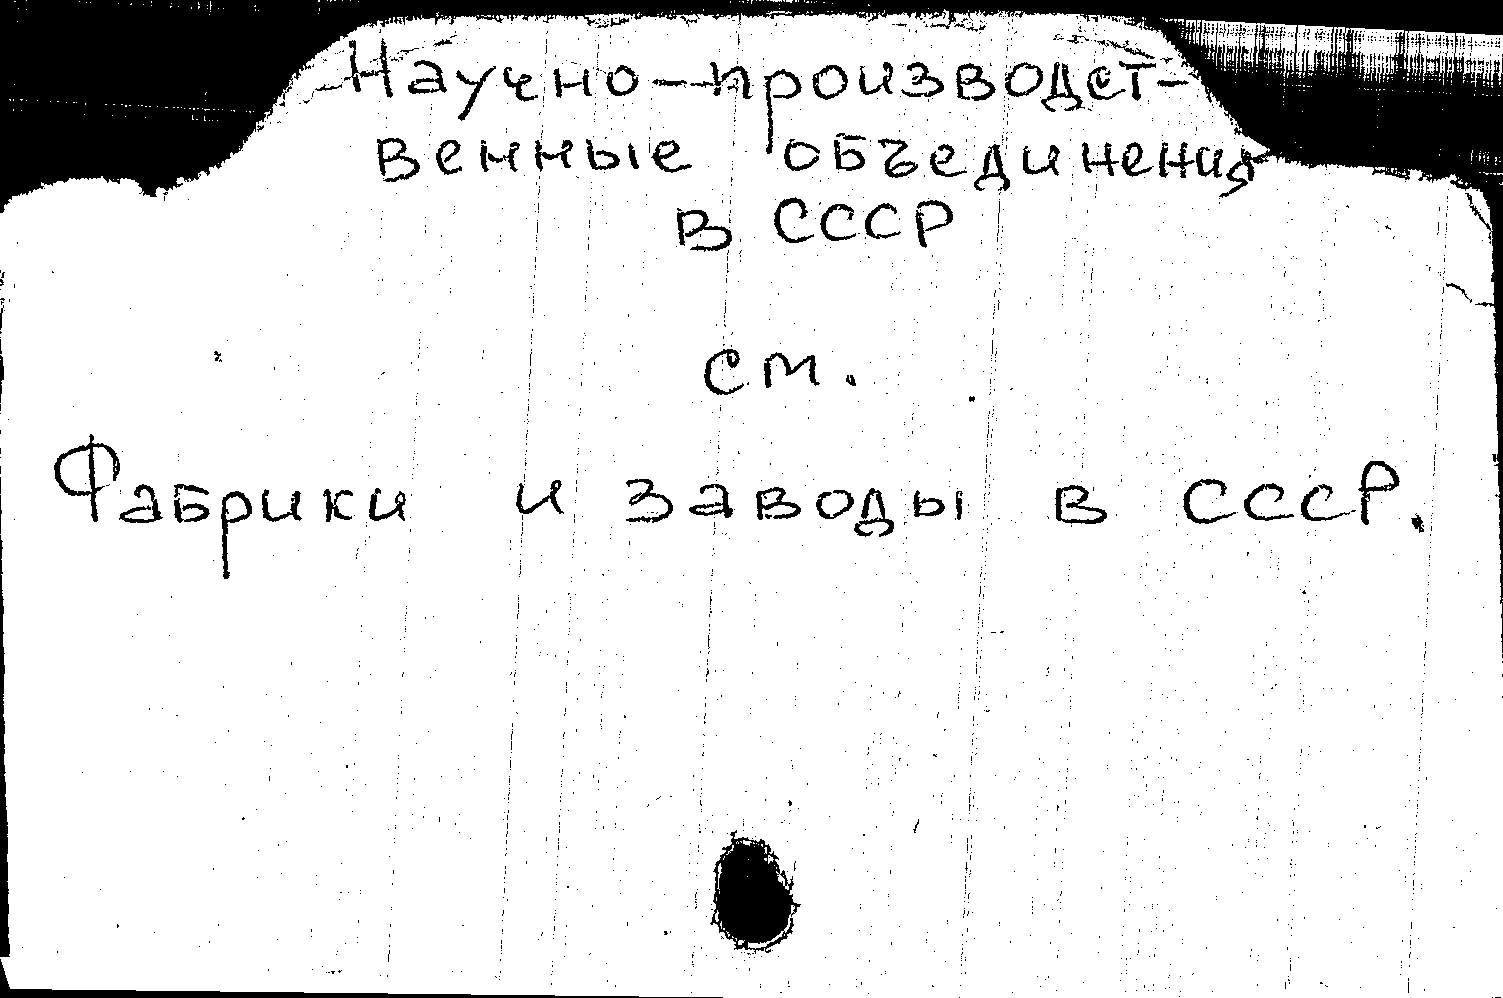 Научно-производст-
венные объединения
в СССР
см.
Фабрики и заводы в СССР.